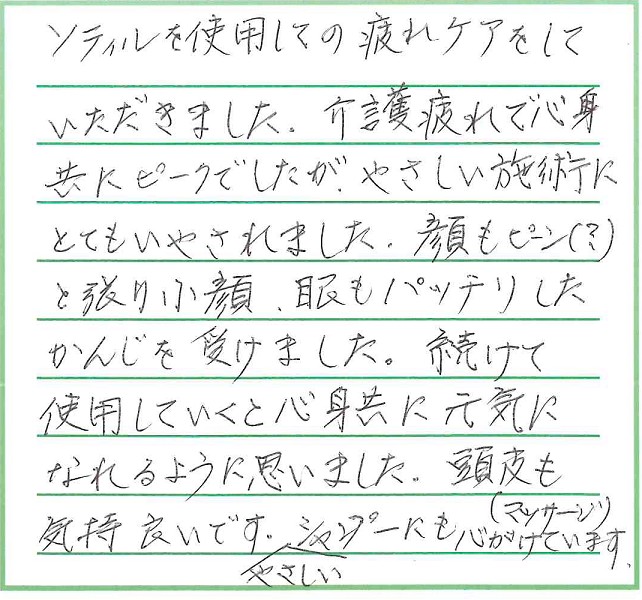 ソティルを使用しての疲れケアをして
いただきました。介護疲れで心身
共にピークでしたが、やさしい施術に
とてもいやされました。顔もピーン(?)
と張り小顔、眼もパッチリした
かんじを受けました。続けて
使用していくと心身共に元気に
なれるように思いました。頭皮も
気持良いです。シャンプーにも心がけています。
(マッサージ)
やさしい